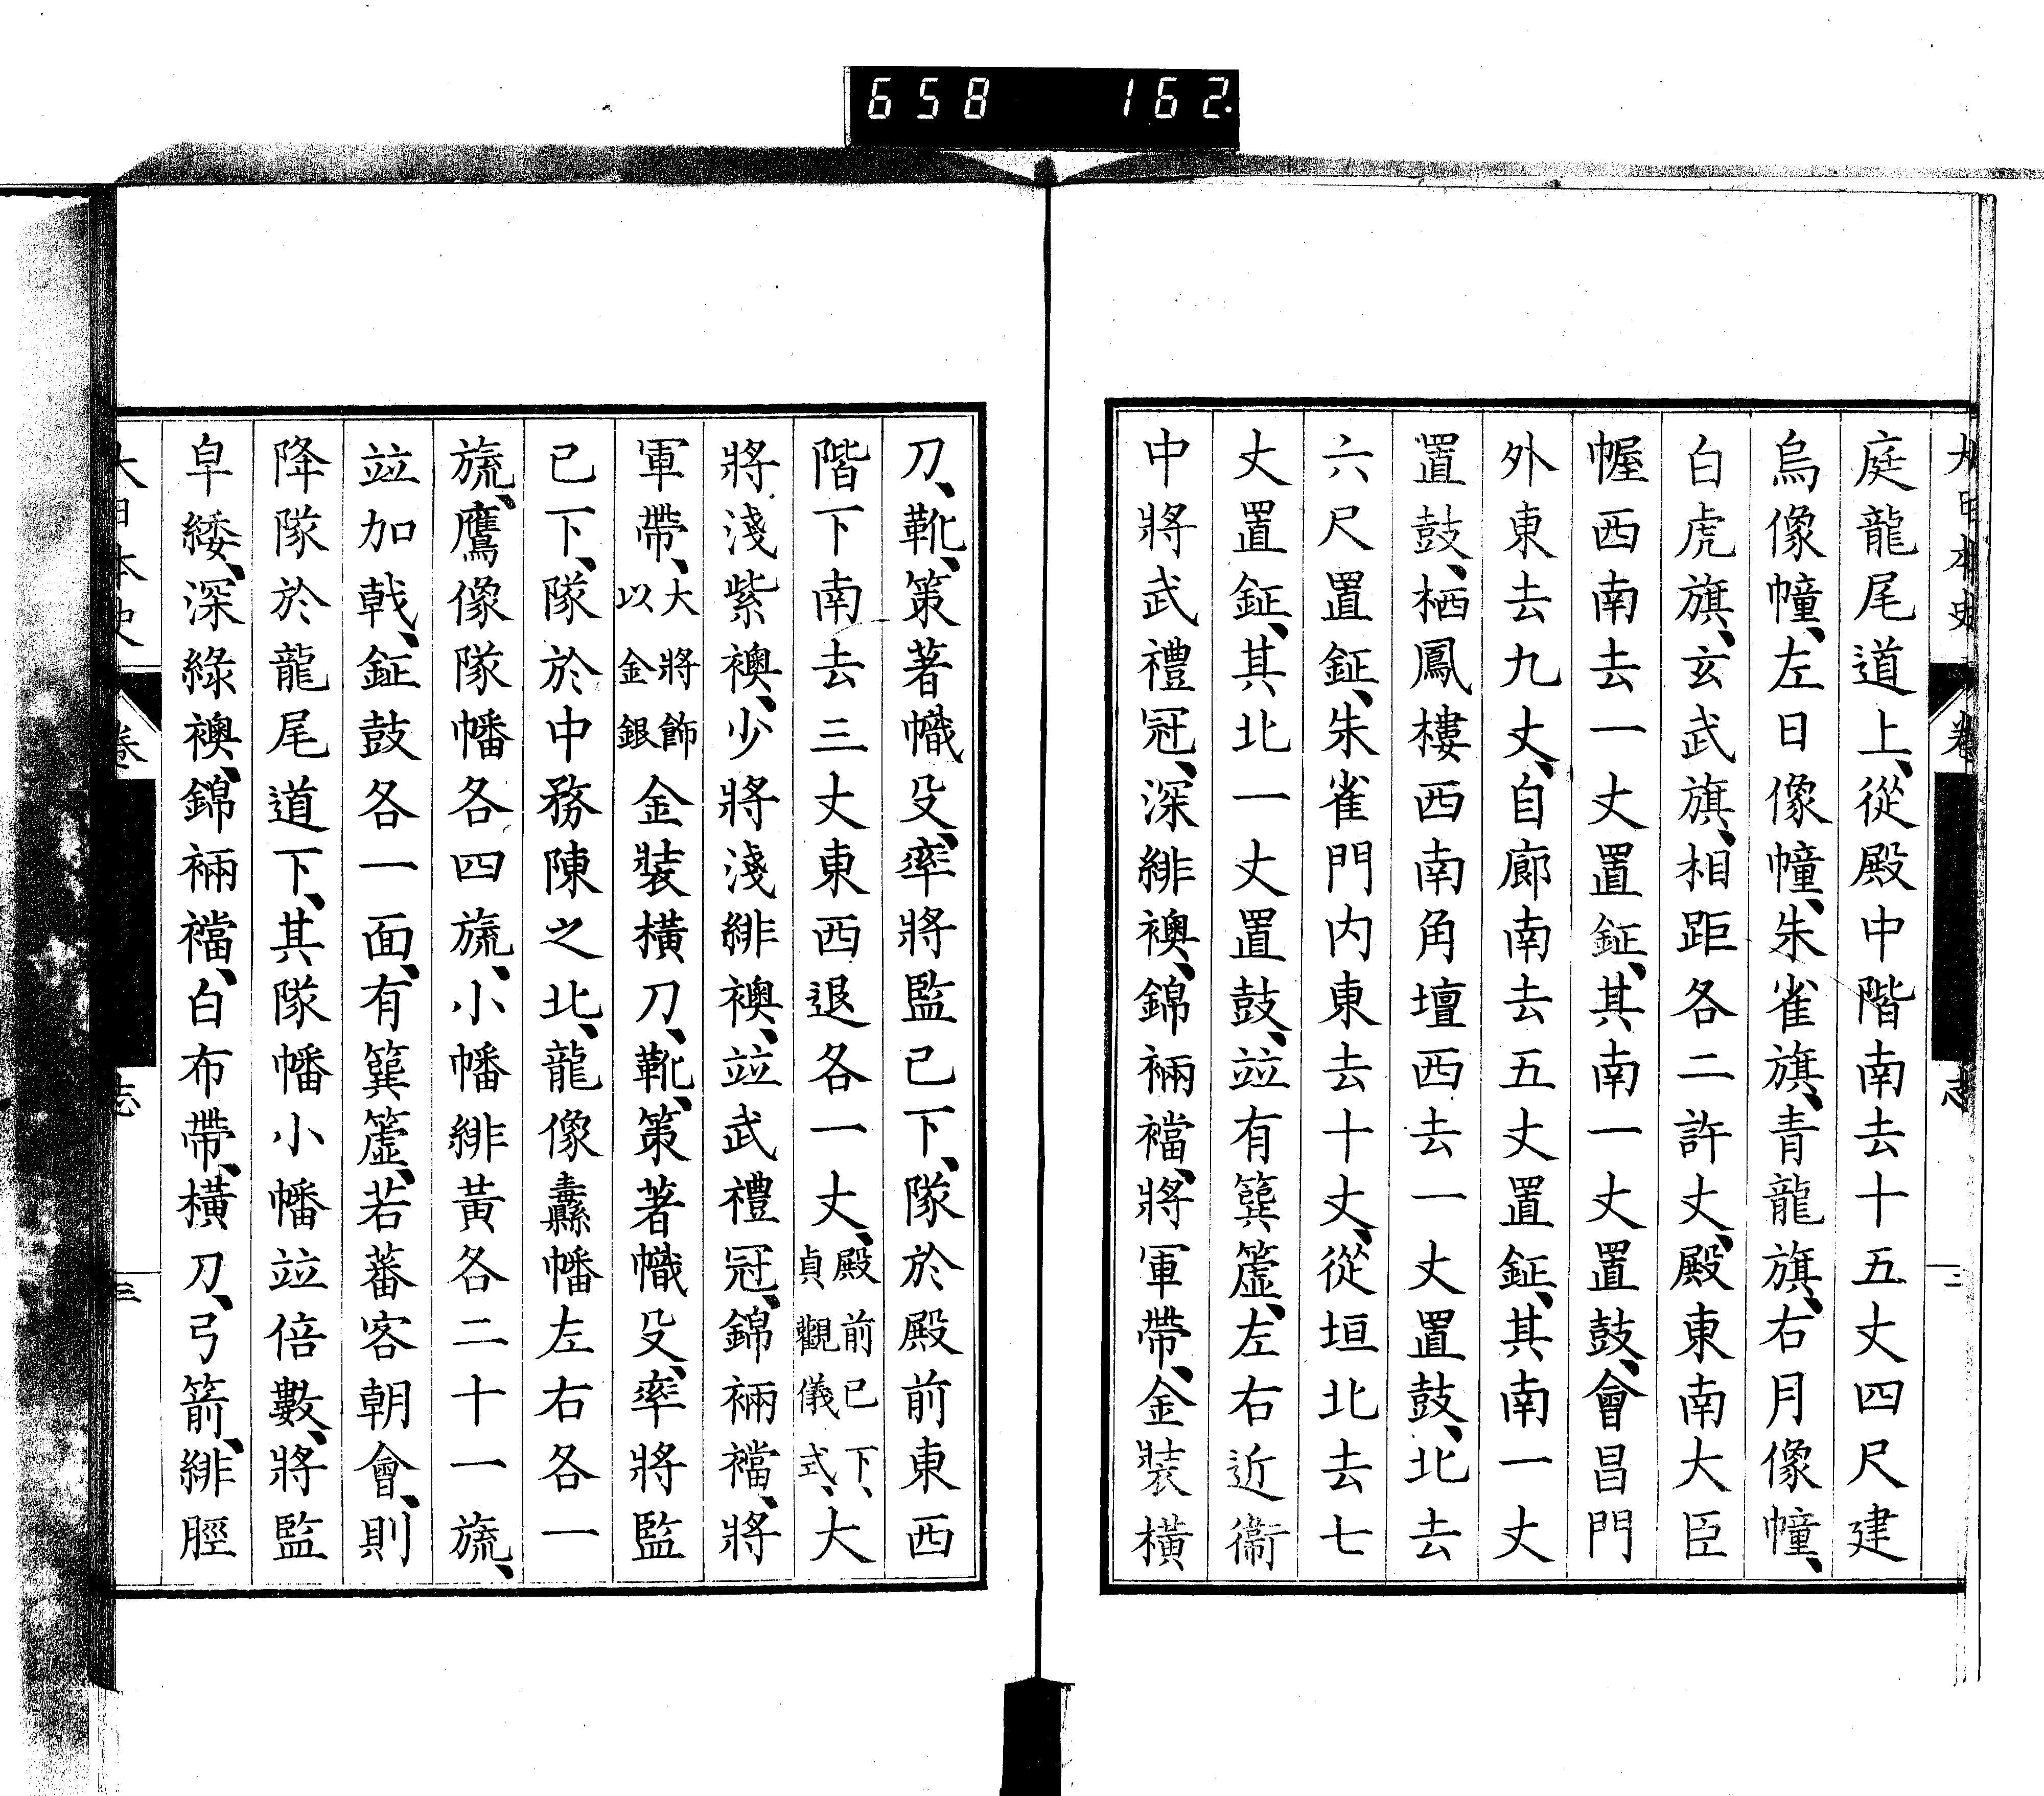 658 162
庭龍尾道上、從殿中階南去十五丈四尺建
烏像幢、左日像幢、朱雀旗、青龍旗、右月像幢、
白虎旗、玄武旗、相距各二許丈、殿東南大臣
幄西南去一丈置鉦、其南一丈置鼓、會昌門
外東去九丈、自廊南去五丈置鉦、其南一丈
置鼓、栖鳳樓西南角壇西去一丈置鼓、北去
六尺置鉦、朱雀門内東去十丈、從垣北去七
丈置鉦、其北一丈置鼓、竝有簨簴、左右近衞
中將武禮冠、深緋襖、錦裲襠、將軍帶、金裝橫
刀、靴、策著幟殳、率將監已下、隊於殿前東西
階下南去三丈東西退各一丈、殿前已下、貞觀儀式、大
將淺紫襖、少將淺緋襖、竝武禮冠、錦裲襠、將
軍帶、大將飾以金銀金裝橫刀、靴、策著幟殳、率將監
已下、隊於中務陳之北、龍像纛幡左右各一
旒、鷹像隊幡各四旒、小幡緋黃各二十一旒、
竝加戟、鉦鼓各一面、有簨簴、若蕃客朝會、則
降隊於龍尾道下、其隊幡小幡竝倍數、將監
皁緌、深綠襖、錦裲襠、白布帶、橫刀、弓箭、緋脛
大日本史 卷 志 三